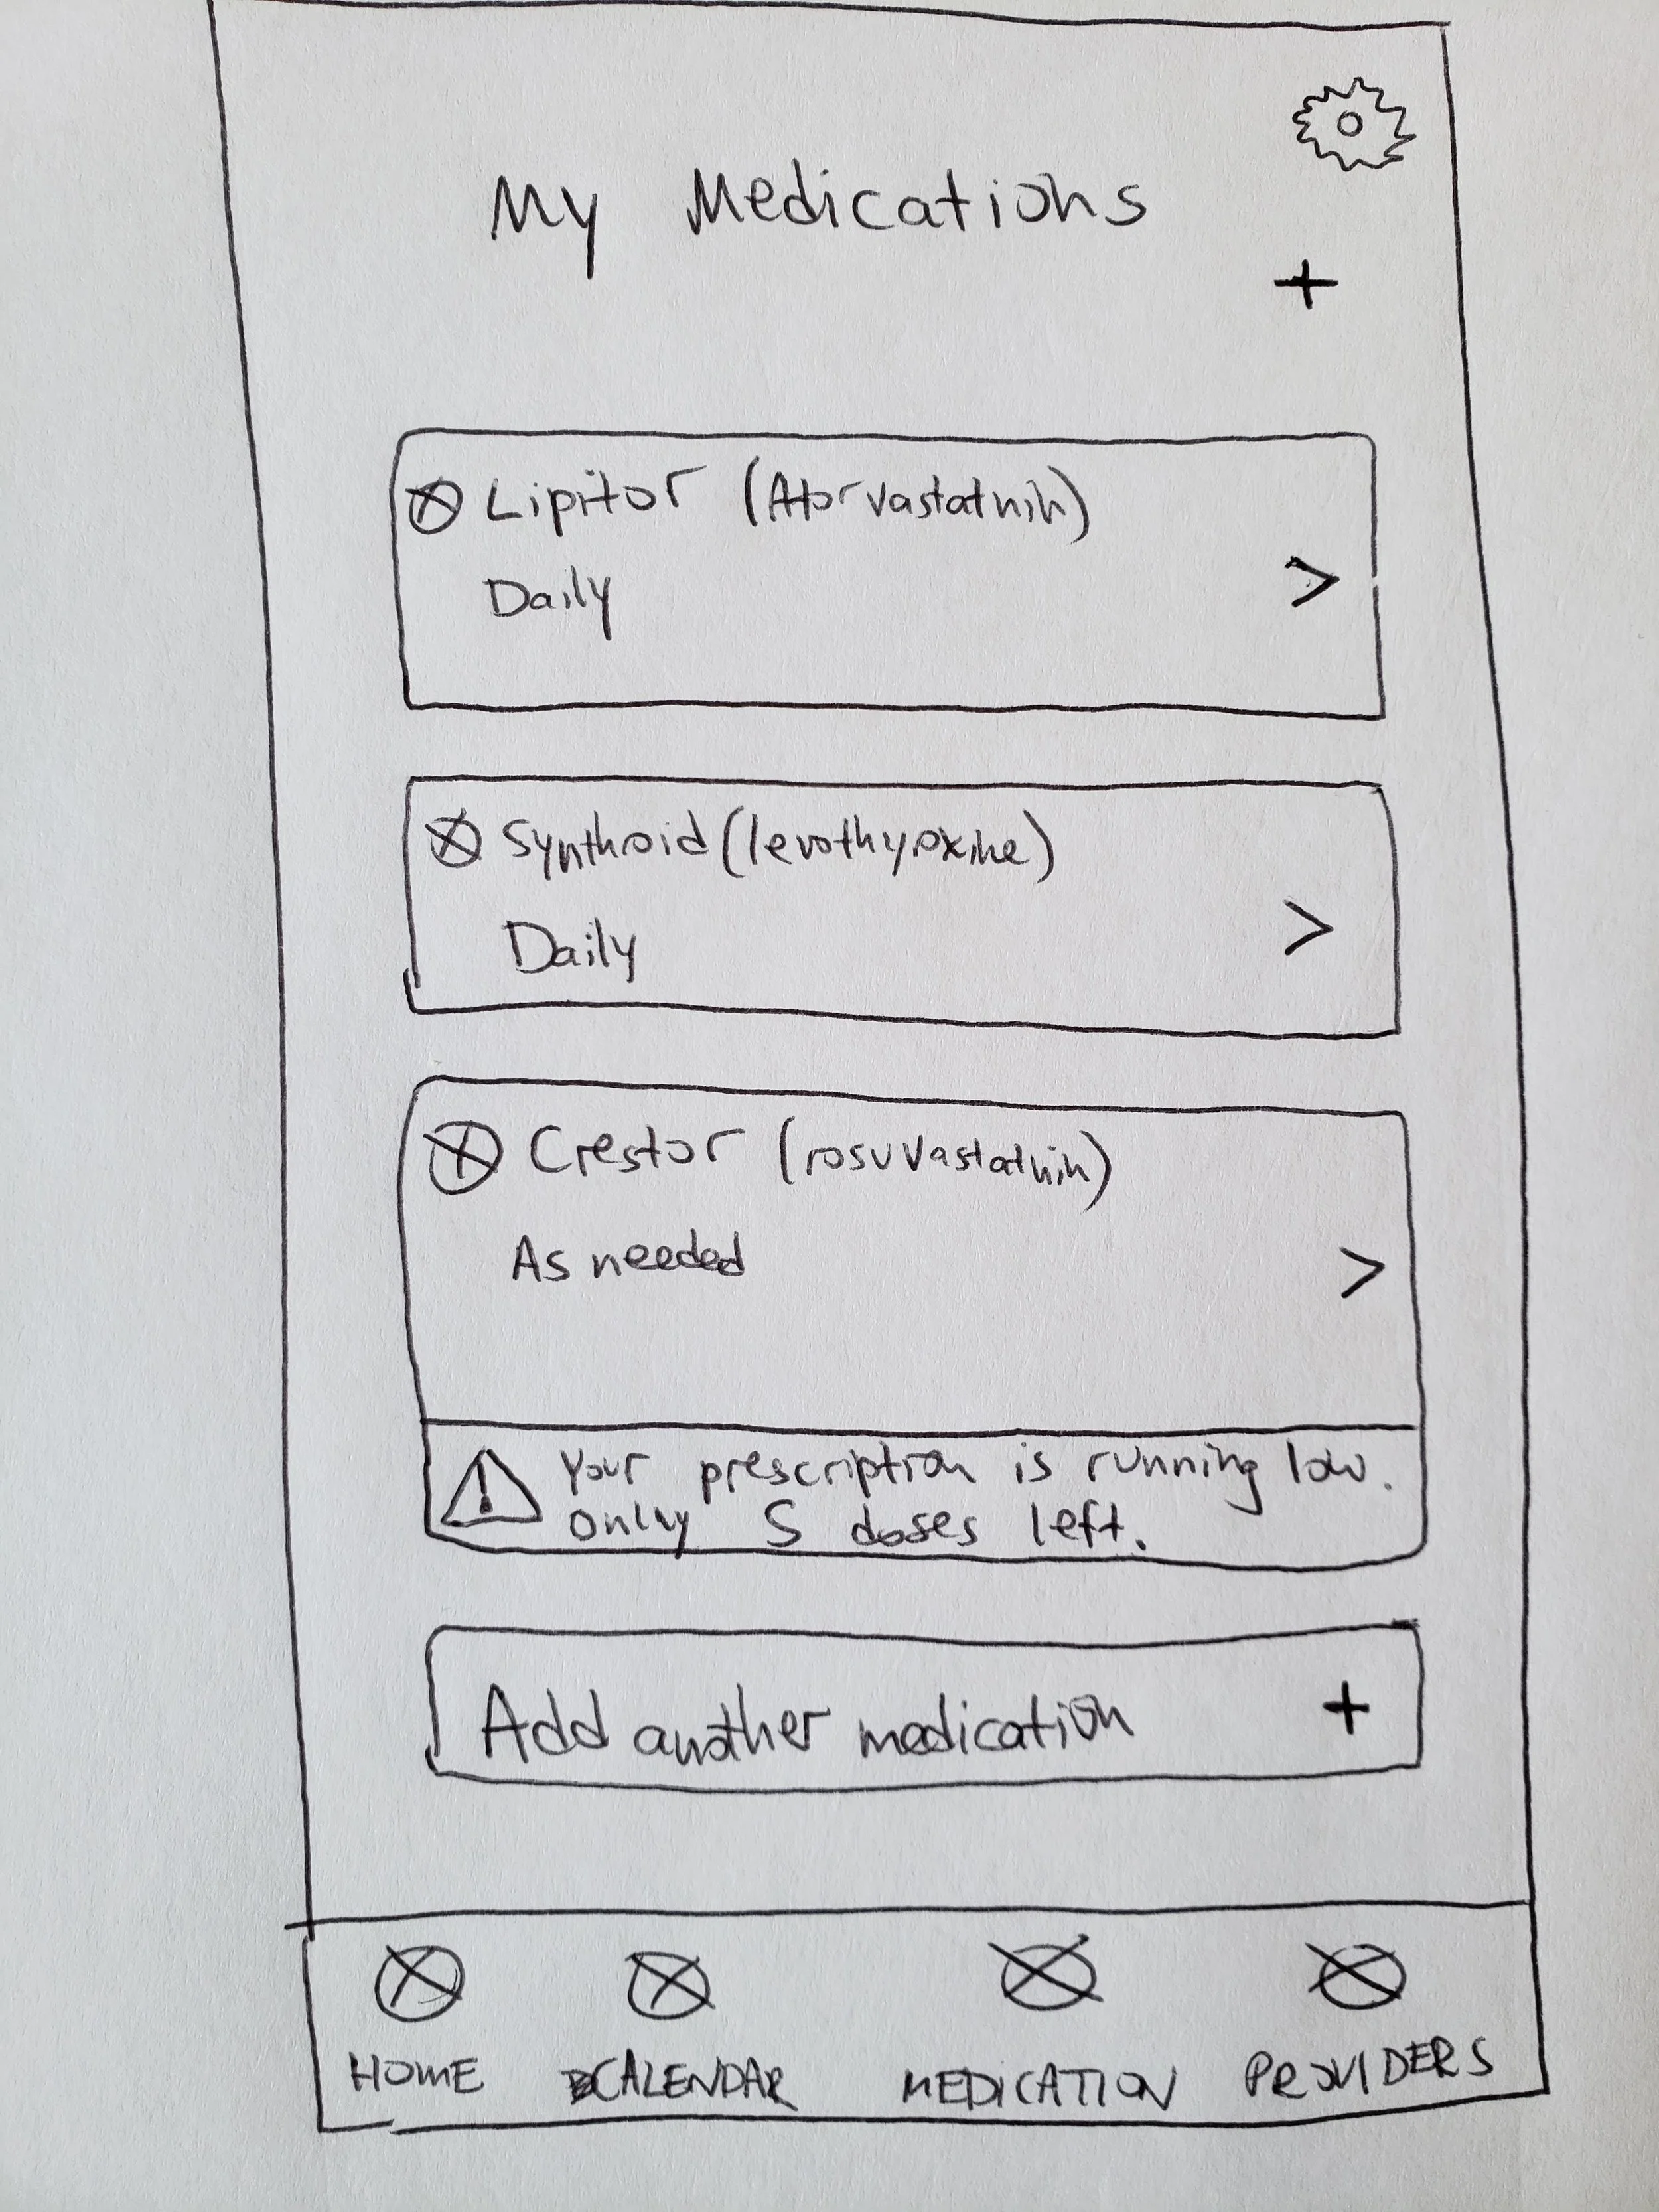 My Medications
+
Lipitor (Atorvastatnin)
Daily
>
Synthroid (levothyroxine)
Daily
>
Crestor (rosuvastatnin)
As needed
>
! Your prescription is running low.
Only 5 doses left.
Add another medication +
HOME CALENDAR MEDICATION PROVIDERS